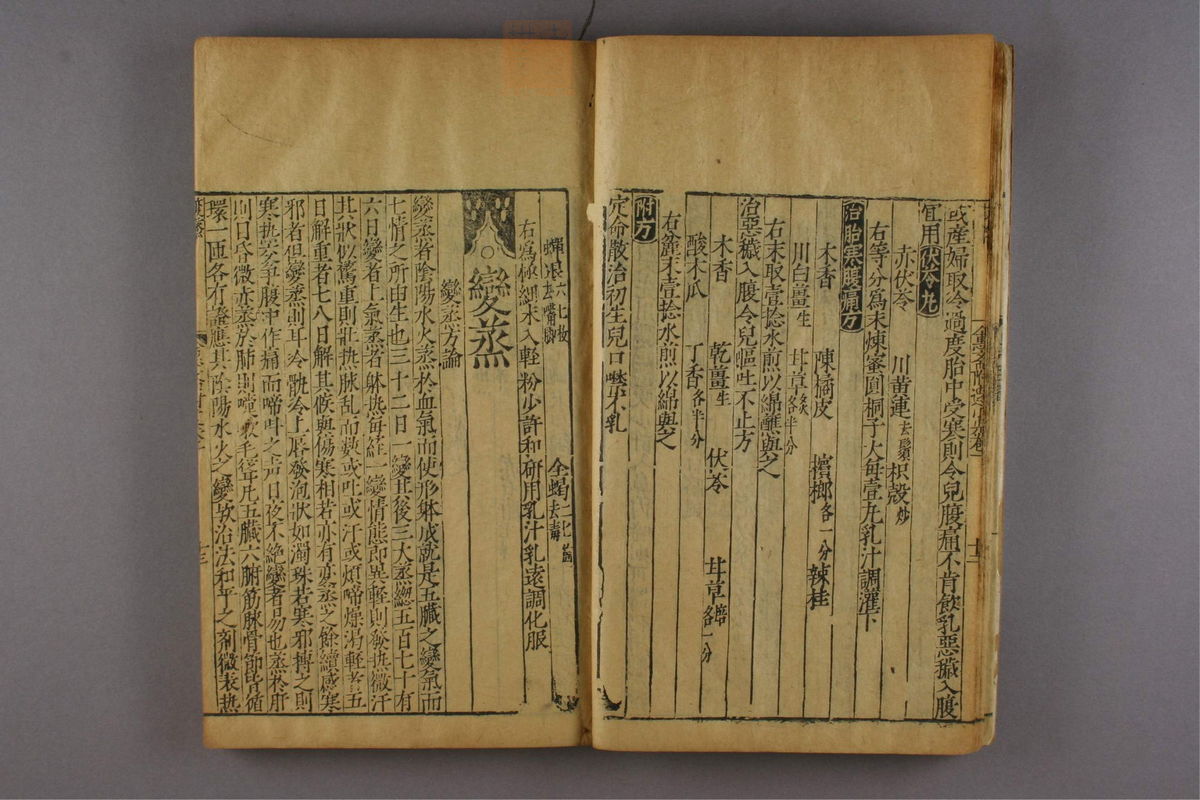 或產婦取冷過度胎中受寒則令兒腹痛不肯飲乳惡穢入腹
宜用茯苓丸
赤茯苓 川黃連去鬚 枳殼炒
右等分為末煉蜜圓桐子大每壹丸乳汁調灌下
治胎寒腹痛方
木香 陳橘皮 檳榔各一分 辣桂
川白薑生 甘草炙各半分
右末取壹捻水煎以綿蘸與之
治惡穢入腹令兒嘔吐不止方
木香 乾薑生 茯苓 甘草焙各一分
酸木瓜 丁香各半分
右麄末壹捻水煎以綿與之
附方
定命散治初生兒口噤不乳
蟬退六七枚去嘴脚 全蝎二七箇去毒
右為極細末入輕粉少許和研用乳汁乳遠調化服
變蒸
變蒸方論
變蒸者陰陽水火蒸於血氣而使形躰成就是五臟之變氣而
七情之所由生也三十二日一變其後三大蒸緫五百七十有
六日變者上氣蒸者躰热每經一變情態即異輕則發热微汗
其狀似驚重則壯热脉乱而數或吐或汗或煩啼燥渴輕者五
日解重者七八日解其候與傷寒相若亦有變蒸之餘續感寒
邪者但變蒸則耳冷骩冷上唇發泡狀如濁珠若寒邪摶之則
寒热交爭腹中作痛而啼呌之声日夜不絶變者易也蒸於肝
則目昏微赤蒸於肺則嚏欬毛聳凡五臟六腑筋脉骨節皆循
環一匝各有證應其陰陽水火之變欤治法和平之剤微表热